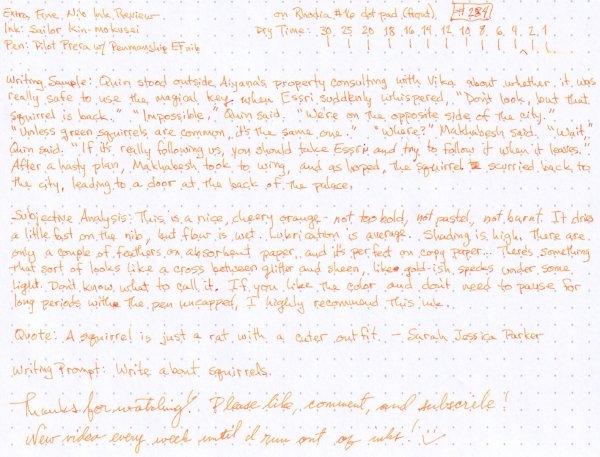 Extra Fine Nib Ink Review on Rhodia #16 dot pad (front) #284
Ink: Sailor kin-mokusei Dry Time: 30 25 20 18 16 14 12 10 8 6 4 2 1
Pen: Pilot Prera w/ Penmanship EF nib
Writing Sample: Quin stood outside Aiyana's property consulting with Vika about whether it was
really safe to use the magical key when Essri suddenly whispered, "Don't look, but that
squirrel is back." "Impossible," Quin said. "We're on the opposite side of the city."
"Unless green squirrels are common, it's the same one." "Where?" Makhabesh said. "Wait,"
Quin said. "If it's really following us, you should take Essri and try to follow it when it leaves."
After a hasty plan, Makhabesh took to wing, and as hoped, the squirrel scurried back to
the city, leading to a door at the back of the palace.
Subjective Analysis: This is a nice, cheery orange - not too bold, not pastel, not burnt. It dries
a little fast on the nib, but flow is wet. Lubrication is average. Shading is high. There are
only a couple of feathers on absorbent paper, and it's perfect on copy paper. There's something
that sort of looks like a cross between glitter and sheen, like gold-ish specks under some
light. Don't know what to call it. If you like the color and don't need to pause for
long periods with the pen uncapped, I highly recommend this ink.
Quote: A squirrel is just a rat with a cuter outfit. - Sarah Jessica Parker
Writing Prompt: Write about squirrels.
Thanks for watching! Please like, comment, and subscribe!
New video every week until I run out of inks!